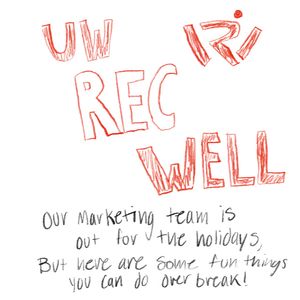 UW
REC
WELL
Our marketing team is
out for the holidays,
But here are some fun things
you can do over break!